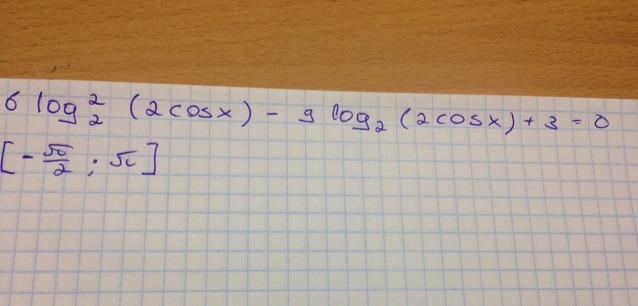 6 log₂² (2cosx) - 9 log₂ (2cosx) + 3 = 0
[-π/2 ; π]